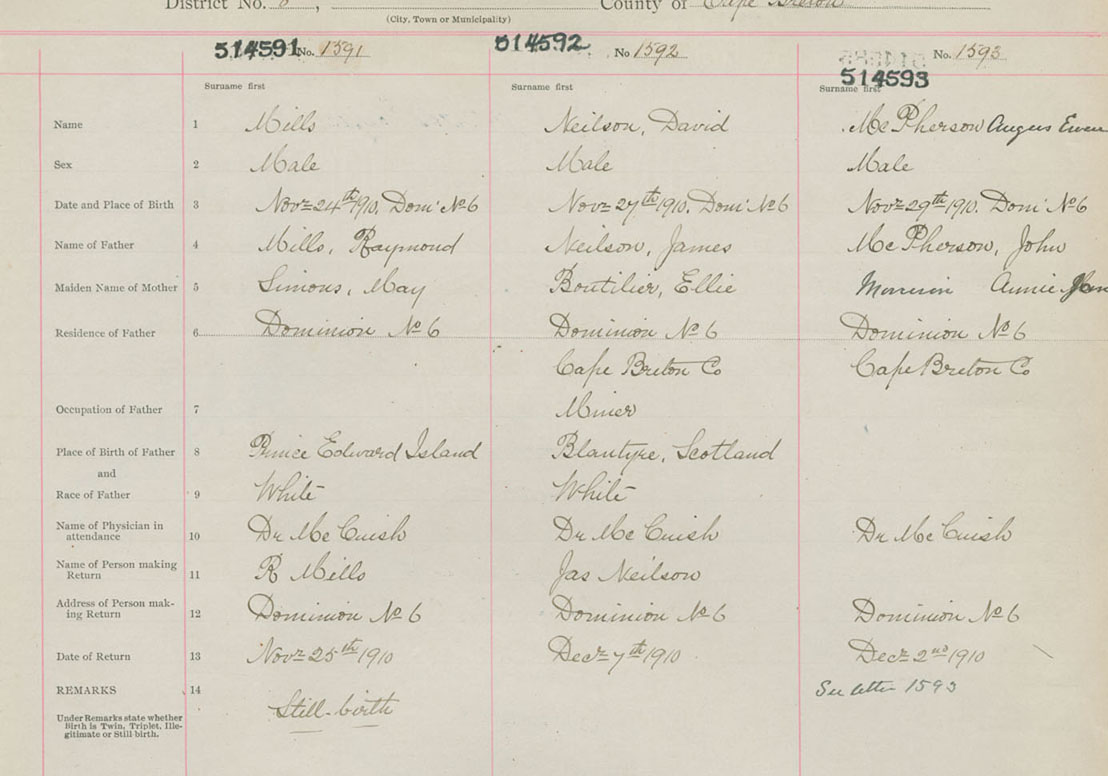 District No. 8, County of Cape Breton
(City, Town or Municipality)
514591 No. 1591 514592 No 1592 No. 1593
514593
Surname first Surname first Surname first
Name 1 Mills Neilson, David McPherson Angus Ewen
Sex 2 Male Male Male
Date and Place of Birth 3 Novr 24th 1910. Dom' No 6 Novr 27th 1910. Dom' No 6 Novr 29th 1910. Dom' No 6
Name of Father 4 Mills, Raymond Neilson, James McPherson, John
Maiden Name of Mother 5 Simons, May Boutilier, Ellie Morrison Annie Jane
Residence of Father 6 Dominion No 6 Dominion No 6 Dominion No 6
Cape Breton Co Cape Breton Co
Occupation of Father 7 Miner
Place of Birth of Father 8 Prince Edward Island Blantyre, Scotland
and
Race of Father 9 White White
Name of Physician in
attendance 10 Dr McCuish Dr McCuish Dr McCuish
Name of Person making
Return 11 R Mills Jas Neilson
Address of Person mak-
ing Return 12 Dominion No 6 Dominion No 6 Dominion No 6
Date of Return 13 Novr 25th 1910 Decr 7th 1910 Decr 2nd 1910
REMARKS 14 Still-birth See letter 1593
Under Remarks state whether
Birth is Twin, Triplet, Ille-
gitimate or Still birth.